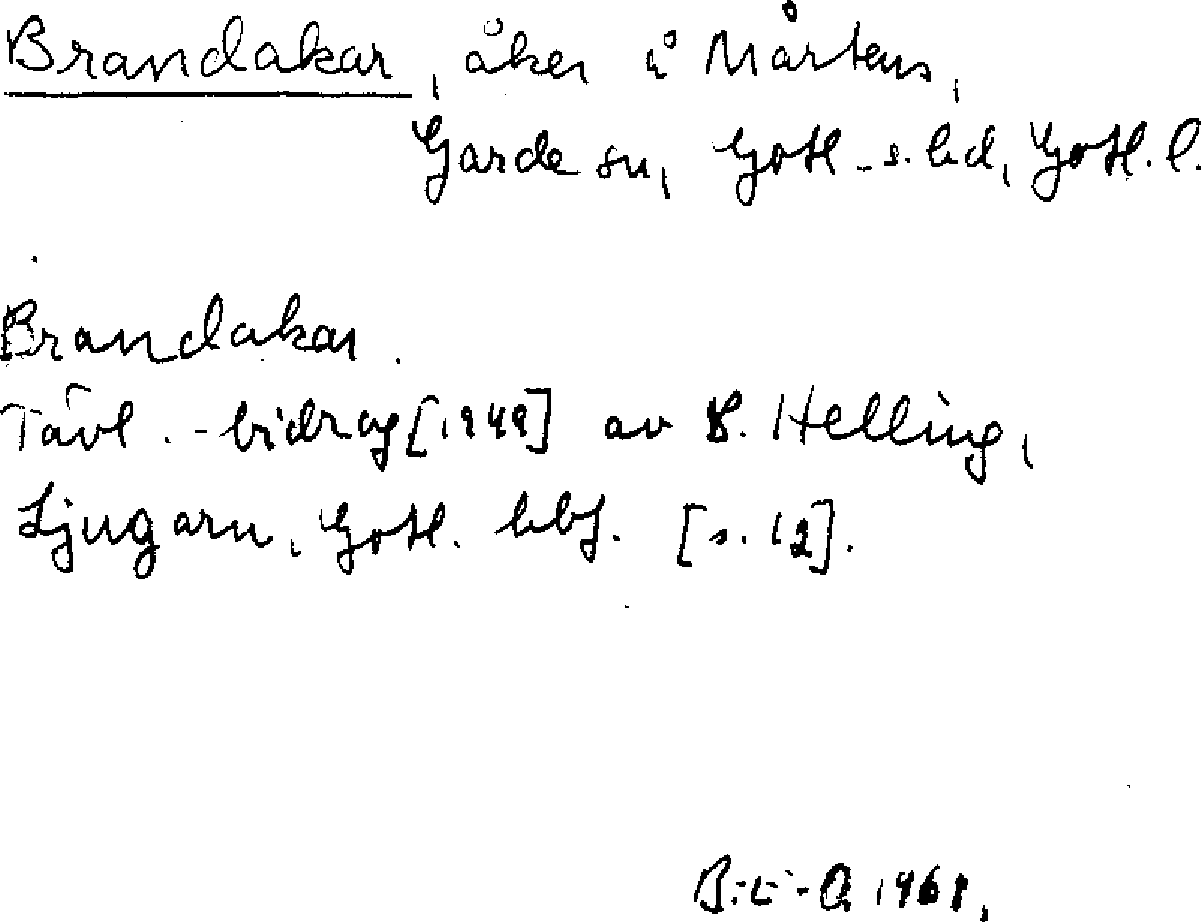 Brandakar, åker i Mårtens,
Garde sn, Gotl. s. hd, Gotl. l.
Brandakar.
Tävl.-bidrag [1949] av S. Helling,
Ljugarn, Gotl. hbf. [s. 12].
1961.